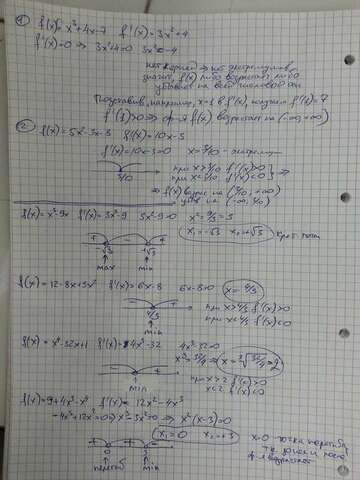 ① f(x)= x³+4x-7   f'(x)=3x²+4
f'(x)=0 ⇒ 3x²+4=0   3x²=-4
нет корней ⇒ нет экстремумов
значит, f(x) либо возрастает, либо
убывает на всей числовой оси
Подставив, например, x=1 в f'(x), получаем f'(1)=7
f'(1)>0 ⇒ ф-я f(x) возрастает на (-∞,+∞)
② f(x)=5x²-3x-3   f'(x)=10x-3
f'(x)=10x-3=0   x=3/10 - экстремум
3/10   при x>3/10 f'(x)>0
при x<3/10 f'(x)<0 ⇒
⇒ f(x) возрас на (3/10, +∞)
убыв на (-∞, 3/10)
f(x)=x³-9x   f'(x)=3x²-9   3x²-9=0   x²=9/3=3
x₁=-√3   x₂=+√3   крит. точки
+ - +
-√3   +√3
max   min
f(x)=12-8x+3x²   f'(x)=6x-8   6x-8=0   x=4/3
- +   при x>4/3 f'(x)>0
4/3   при x<4/3 f'(x)<0
min
f(x)=x⁴-32x+1   f'(x)=4x³-32   4x³-32=0
x³=32/4 ⇒ x=∛32/4=2
- +   при x>2 f'(x)>0
min   x<2 f'(x)<0
f(x)=9+4x³-x⁴   f'(x)=12x²-4x³
-4x³+12x²=0 ⇒ x³-3x²=0 ⇒ x²(x-3)=0
x₁=0   x₂=+3   x=0 - точка перегиба
0   3
перегиб   min